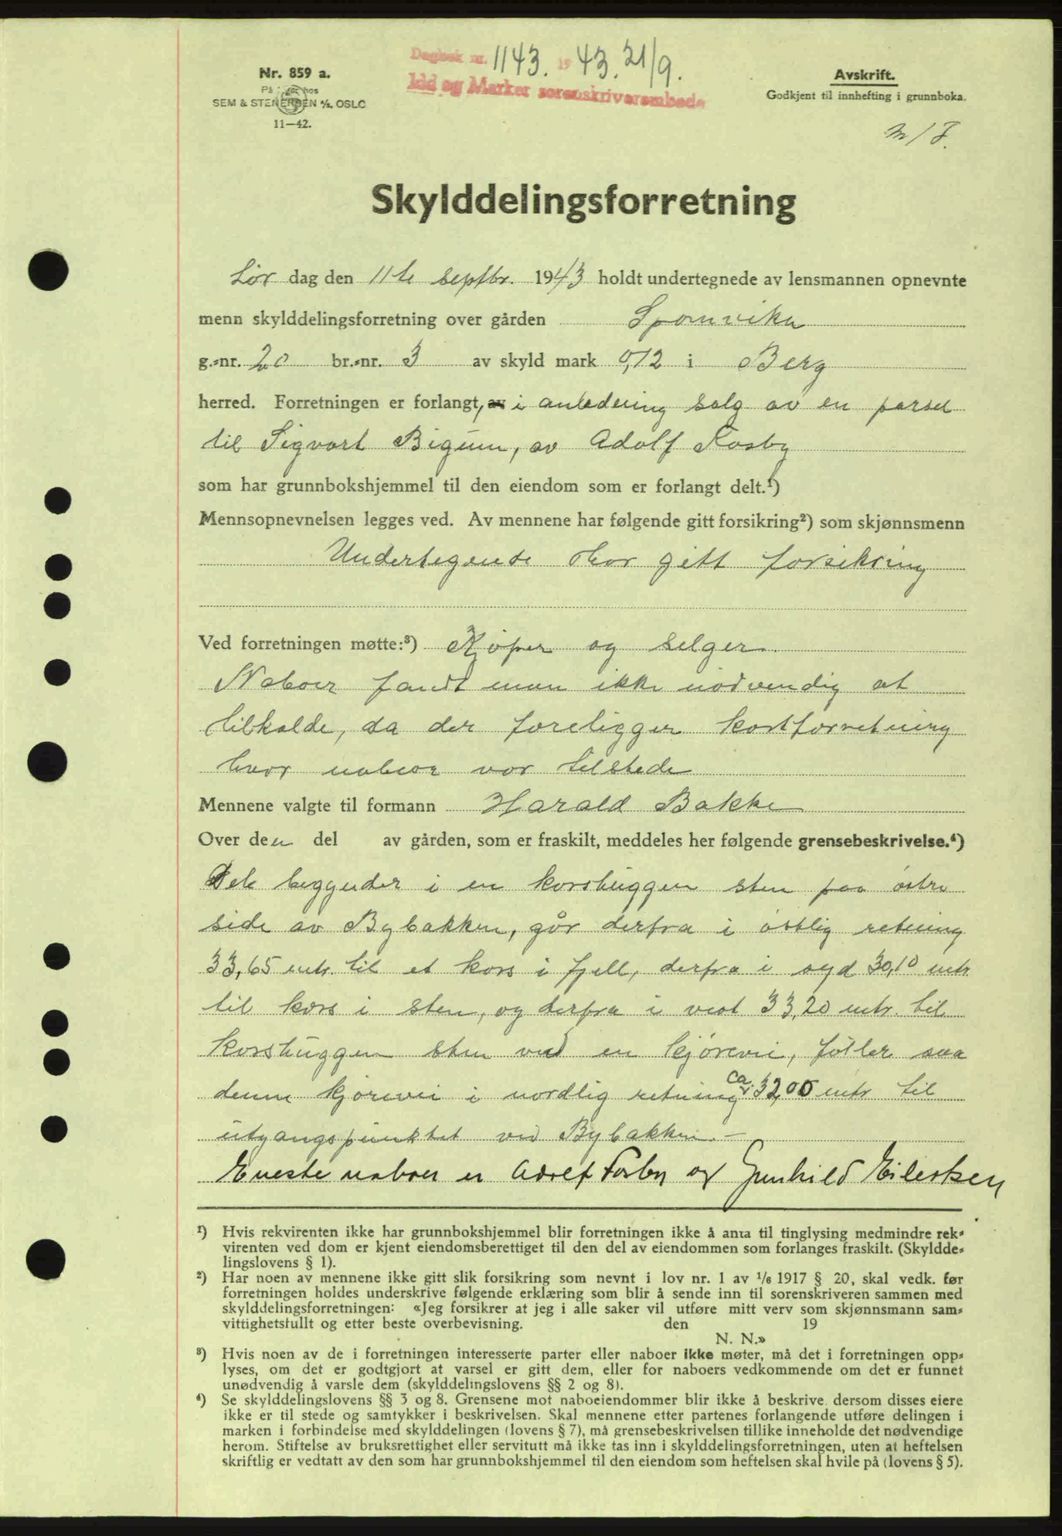 Dagbok nr. 1143. 1943. 21/9.
Idd og Marker sorenskriverembede
Nr. 859 a.
På lager hos
SEM & STENERSEN A/S, OSLO
11—42.
Avskrift.
Godkjent til innhefting i grunnboka.
Skylddelingsforretning
Lør dag den 11te septbr. 1943 holdt undertegnede av lensmannen opnevnte
menn skylddelingsforretning over gården Sponvika
g.-nr. 20 br.-nr. 3 av skyld mark 0,12 i Berg
herred. Forretningen er forlangt, av i anledning salg av en parsel
til Sigvart Bigum, av Adolf Fosby
som har grunnbokshjemmel til den eiendom som er forlangt delt.¹)
Mennsopnevnelsen legges ved. Av mennene har følgende gitt forsikring²) som skjønnsmenn
Undertegende har gitt forsikring
Ved forretningen møtte:³) Kjøper og selger.
Naboer fandt man ikke nødvendig at
tilkalde, da der foreligger kartforretning
hvor naboer var tilstede
Mennene valgte til formann Harald Bakke
Over den del av gården, som er fraskilt, meddeles her følgende grensebeskrivelse.⁴)
Det begynder i en korshuggen sten paa østre
side av Bybakken, går derfra i østlig retning
33,65 mtr. til et kors i fjell, derfra i syd 30,10 mtr
til kors i sten, og derfra i vest 33,20 mtr. til
korshuggen sten ved en kjørevei, føller saa
denne kjørevei i nordlig retning ca. 32,00 mtr til
utgangspunktet ved Bybakken.—
Eneste naboer er Adolf Fosby og Gunhild Eilertsen
¹) Hvis rekvirenten ikke har grunnbokshjemmel blir forretningen ikke å anta til tinglysing medmindre rek-
virenten ved dom er kjent eiendomsberettiget til den del av eiendommen som forlanges fraskilt. (Skyldde-
lingslovens § 1).
²) Har noen av mennene ikke gitt slik forsikring som nevnt i lov nr. 1 av 1/6 1917 § 20, skal vedk. før
forretningen holdes underskrive følgende erklæring som blir å sende inn til sorenskriveren sammen med
skylddelingsforretningen: «Jeg forsikrer at jeg i alle saker vil utføre mitt verv som skjønnsmann sam-
vittighetsfullt og etter beste overbevisning. den 19
N. N.»
³) Hvis noen av de i forretningen interesserte parter eller naboer ikke møter, må det i forretningen opp-
lyses, om det er godtgjort at varsel er gitt dem, eller for naboers vedkommende om det er funnet
unødvendig å varsle dem (skylddelingslovens §§ 2 og 8).
⁴) Se skylddelingslovens §§ 3 og 8. Grensene mot naboeiendommer blir ikke å beskrive dersom disses eiere
ikke er til stede og samtykker i beskrivelsen. Skal mennene etter partenes forlangende utføre delingen i
marken i forbindelse med skylddelingen (lovens § 7), må grensebeskrivelsen tillike inneholde det nødvendige
herom. Stiftelse av bruksrettighet eller servitutt må ikke tas inn i skylddelingsforretningen, uten at heftelsen
skriftlig er vedtatt av den som har grunnbokshjemmel til den eiendom som heftelsen skal hvile på (lovens § 5).